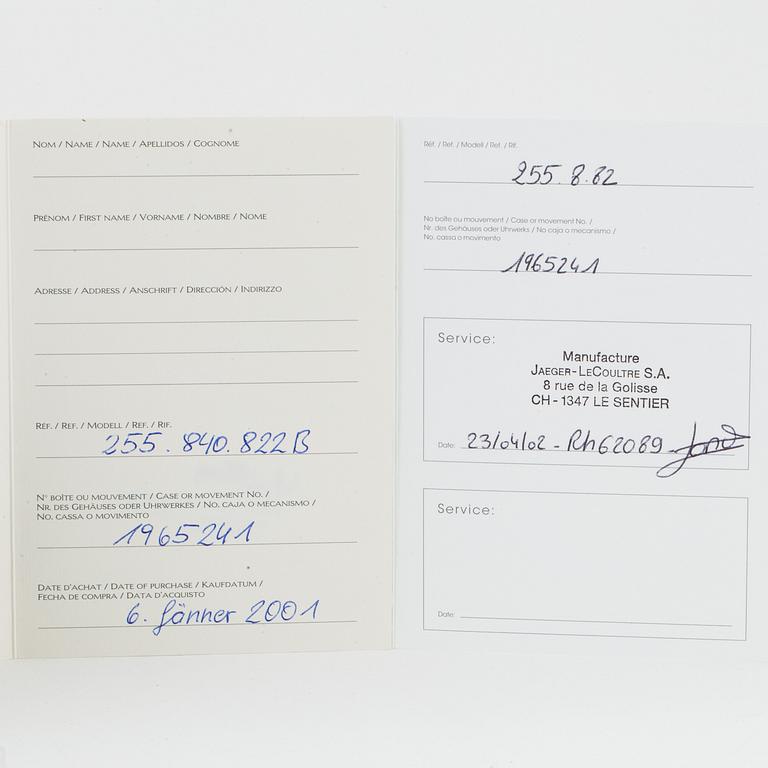 NOM / NAME / NAME / APELLIDOS / COGNOME
PRÉNOM / FIRST NAME / VORNAME / NOMBRE / NOME
ADRESSE / ADDRESS / ANSCHRIFT / DIRECCIÓN / INDIRIZZO
RÉF. / REF. / MODELL / REF. / RIF.
255.840.822B
N° BOÎTE OU MOUVEMENT / CASE OR MOVEMENT NO. /
NR. DES GEHÄUSES ODER UHRWERKES / NO. CAJA O MECANISMO /
NO. CASSA O MOVIMENTO
1965241
DATE D'ACHAT / DATE OF PURCHASE / KAUFDATUM /
FECHA DE COMPRA / DATA D'ACQUISTO
6. Jänner 2001
Réf. / Ref. / Modell / Ref. / Rif.
255.8.82
No boîte ou mouvement / Case or movement No. /
Nr. des Gehäuses oder Uhrwerks / No caja o mecanismo /
No. cassa o movimento
1965241
Service:
Manufacture
JAEGER-LECOULTRE S.A.
8 rue de la Golisse
CH - 1347 LE SENTIER
Date: 23/04/02 - Rh62089
Service:
Date: